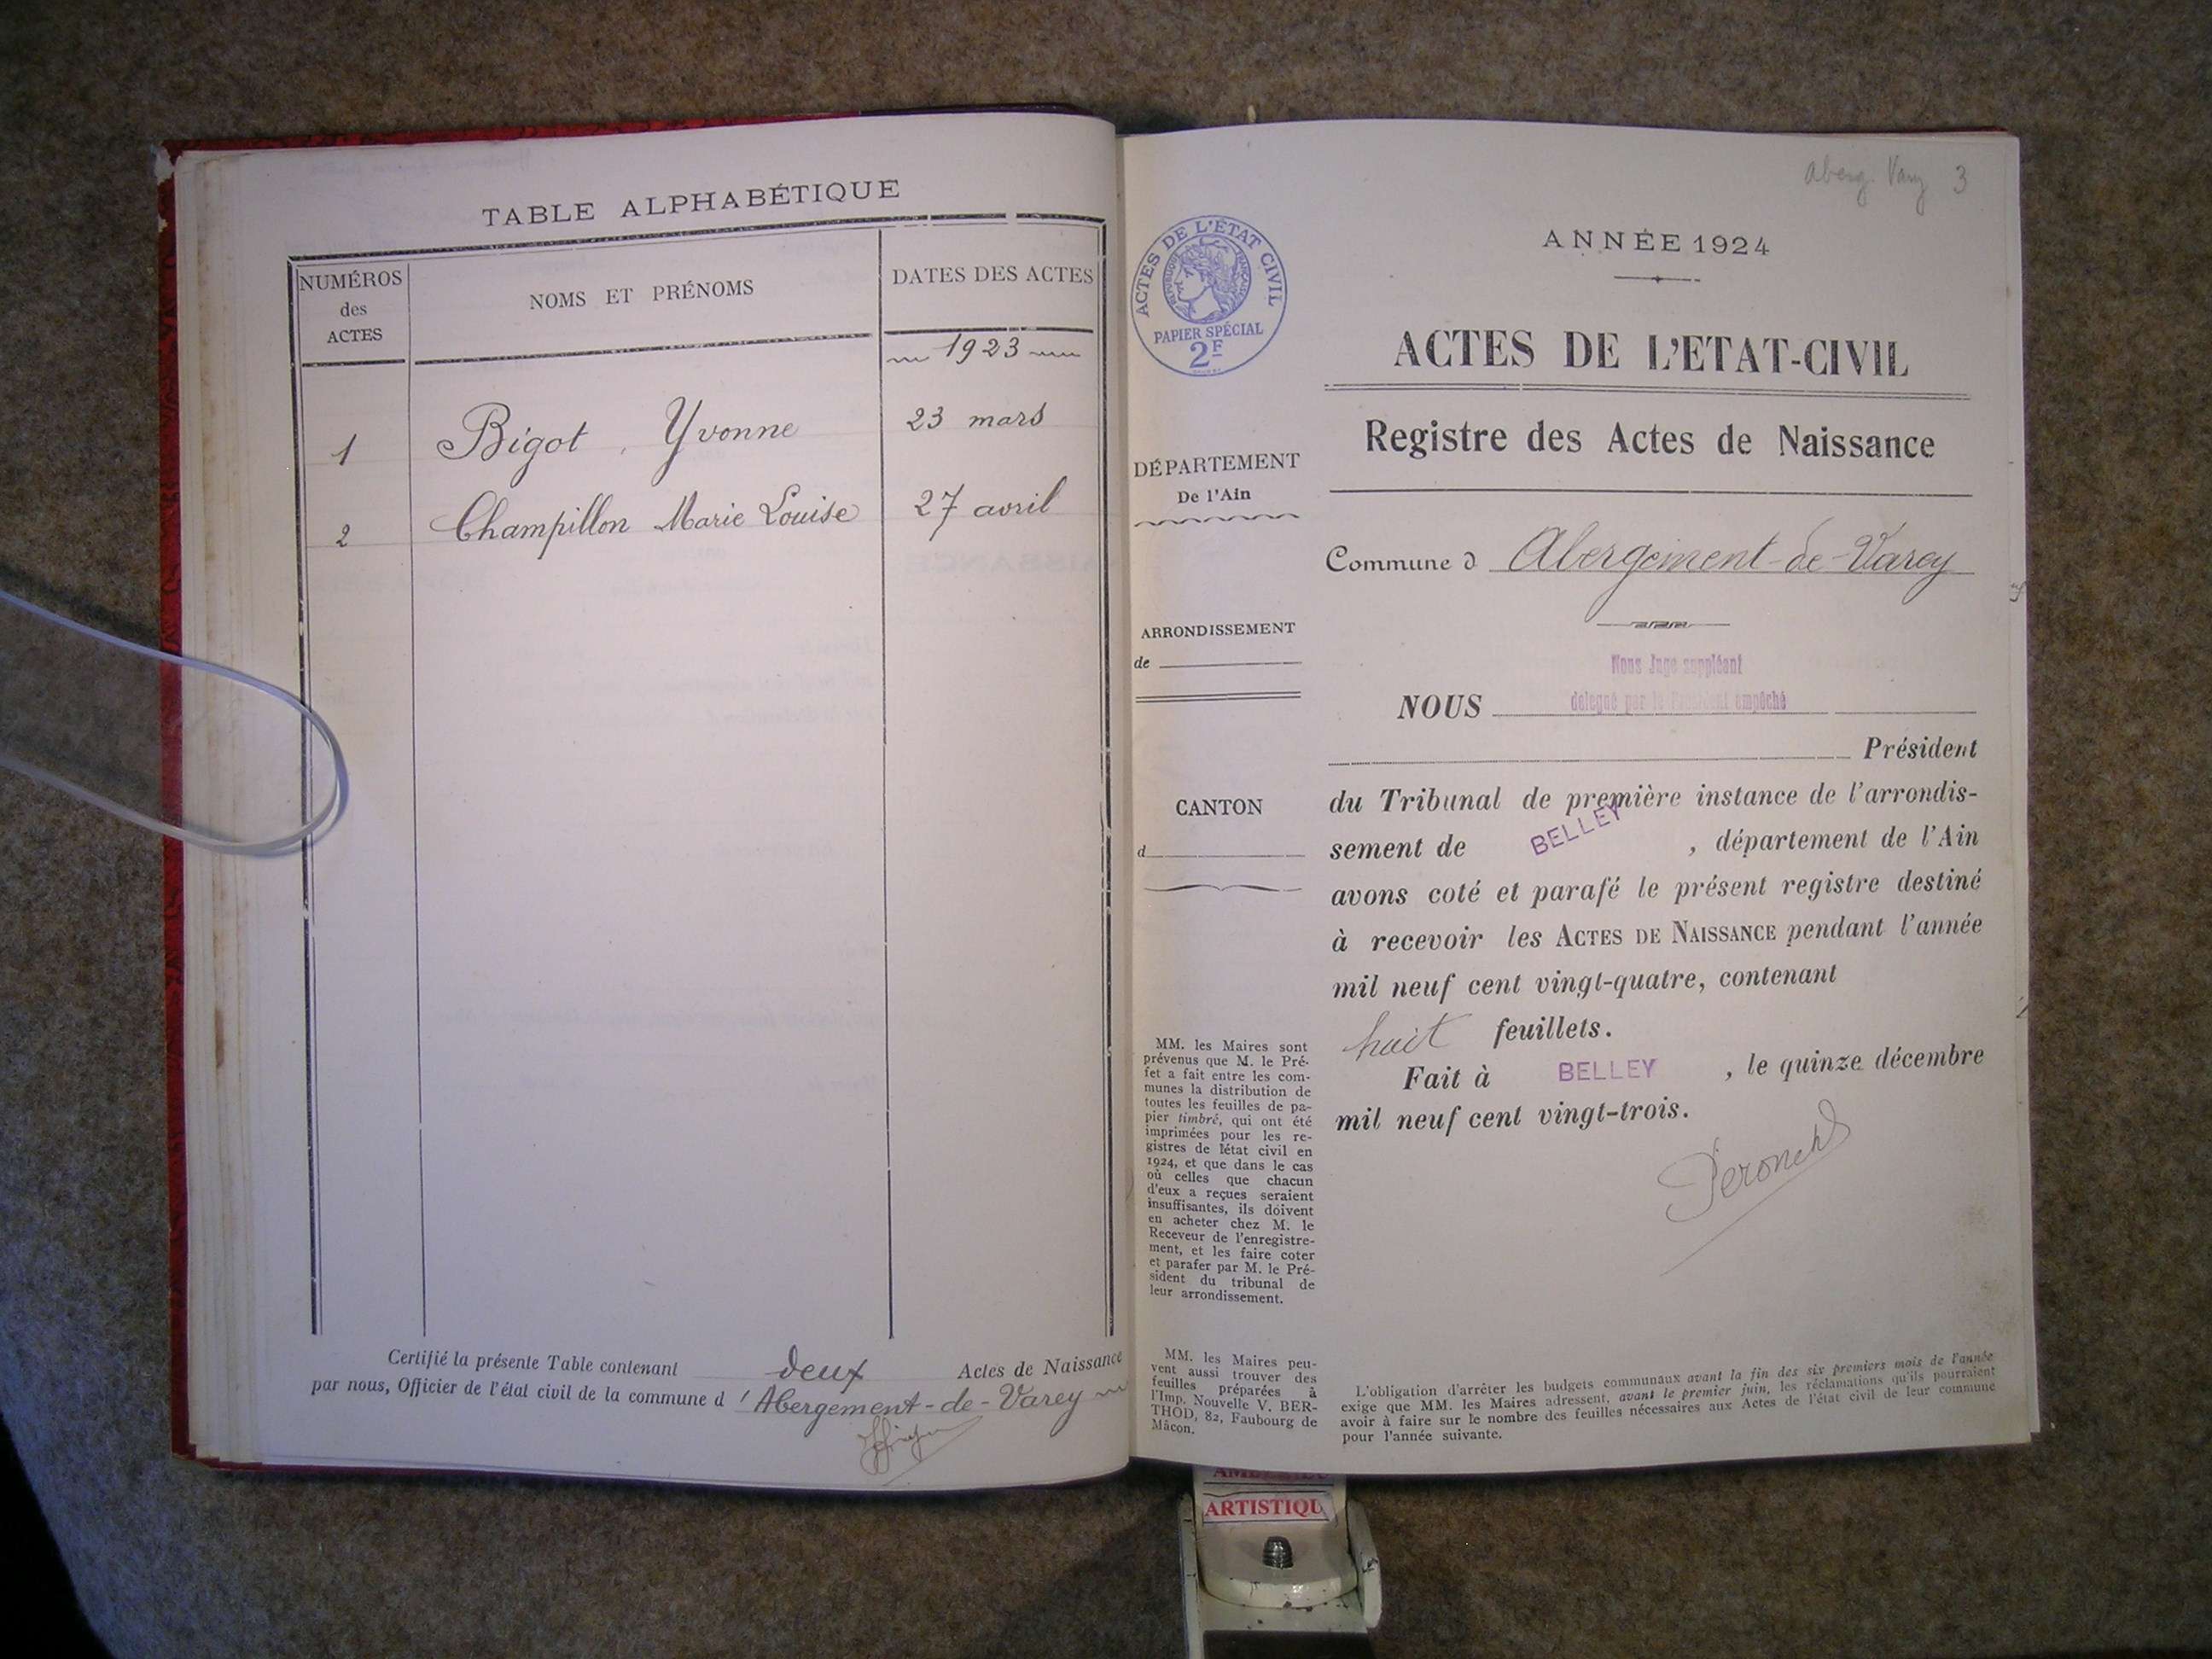 TABLE ALPHABÉTIQUE
NUMÉROS
des
ACTES
NOMS ET PRÉNOMS
DATES DES ACTES
1923
1 Bigot, Yvonne 23 mars
2 Champillon Marie Louise 27 avril
Certifié la présente Table contenant deux Actes de Naissance
par nous, Officier de l'état civil de la commune d 'Abergement-de-Varey
Aberg. Vary 3
ANNÉE 1924
ACTES DE L'ÉTAT CIVIL
RÉPUBLIQUE FRANÇAISE
PAPIER SPÉCIAL
2F
ACTES DE L'ETAT-CIVIL
Registre des Actes de Naissance
DÉPARTEMENT
De l'Ain
Commune d Abergement-de-Varey
ARRONDISSEMENT
de
CANTON
d
Nous Juge suppléant
délégué par le Président empêché
NOUS
Président
du Tribunal de première instance de l'arrondis-
sement de BELLEY, département de l'Ain
avons coté et parafé le présent registre destiné
à recevoir les ACTES DE NAISSANCE pendant l'année
mil neuf cent vingt-quatre, contenant
huit feuillets.
Fait à BELLEY, le quinze décembre
mil neuf cent vingt-trois.
MM. les Maires sont
prévenus que M. le Pré-
fet a fait entre les com-
munes la distribution de
toutes les feuilles de pa-
pier timbré, qui ont été
imprimées pour les re-
gistres de l'état civil en
1924, et que dans le cas
où celles que chacun
d'eux a reçues seraient
insuffisantes, ils doivent
en acheter chez M. le
Receveur de l'enregistre-
ment, et les faire coter
et parafer par M. le Pré-
sident du tribunal de
leur arrondissement.
MM. les Maires peu-
vent aussi trouver des
feuilles préparées à
l'Imp. Nouvelle V. BER-
THOD, 82, Faubourg de
Mâcon.
L'obligation d'arrêter les budgets communaux avant la fin des six premiers mois de l'année
exige que MM. les Maires adressent, avant le premier juin, les réclamations qu'ils pourraient
avoir à faire sur le nombre des feuilles nécessaires aux Actes de l'état civil de leur commune
pour l'année suivante.
ARTISTIQU